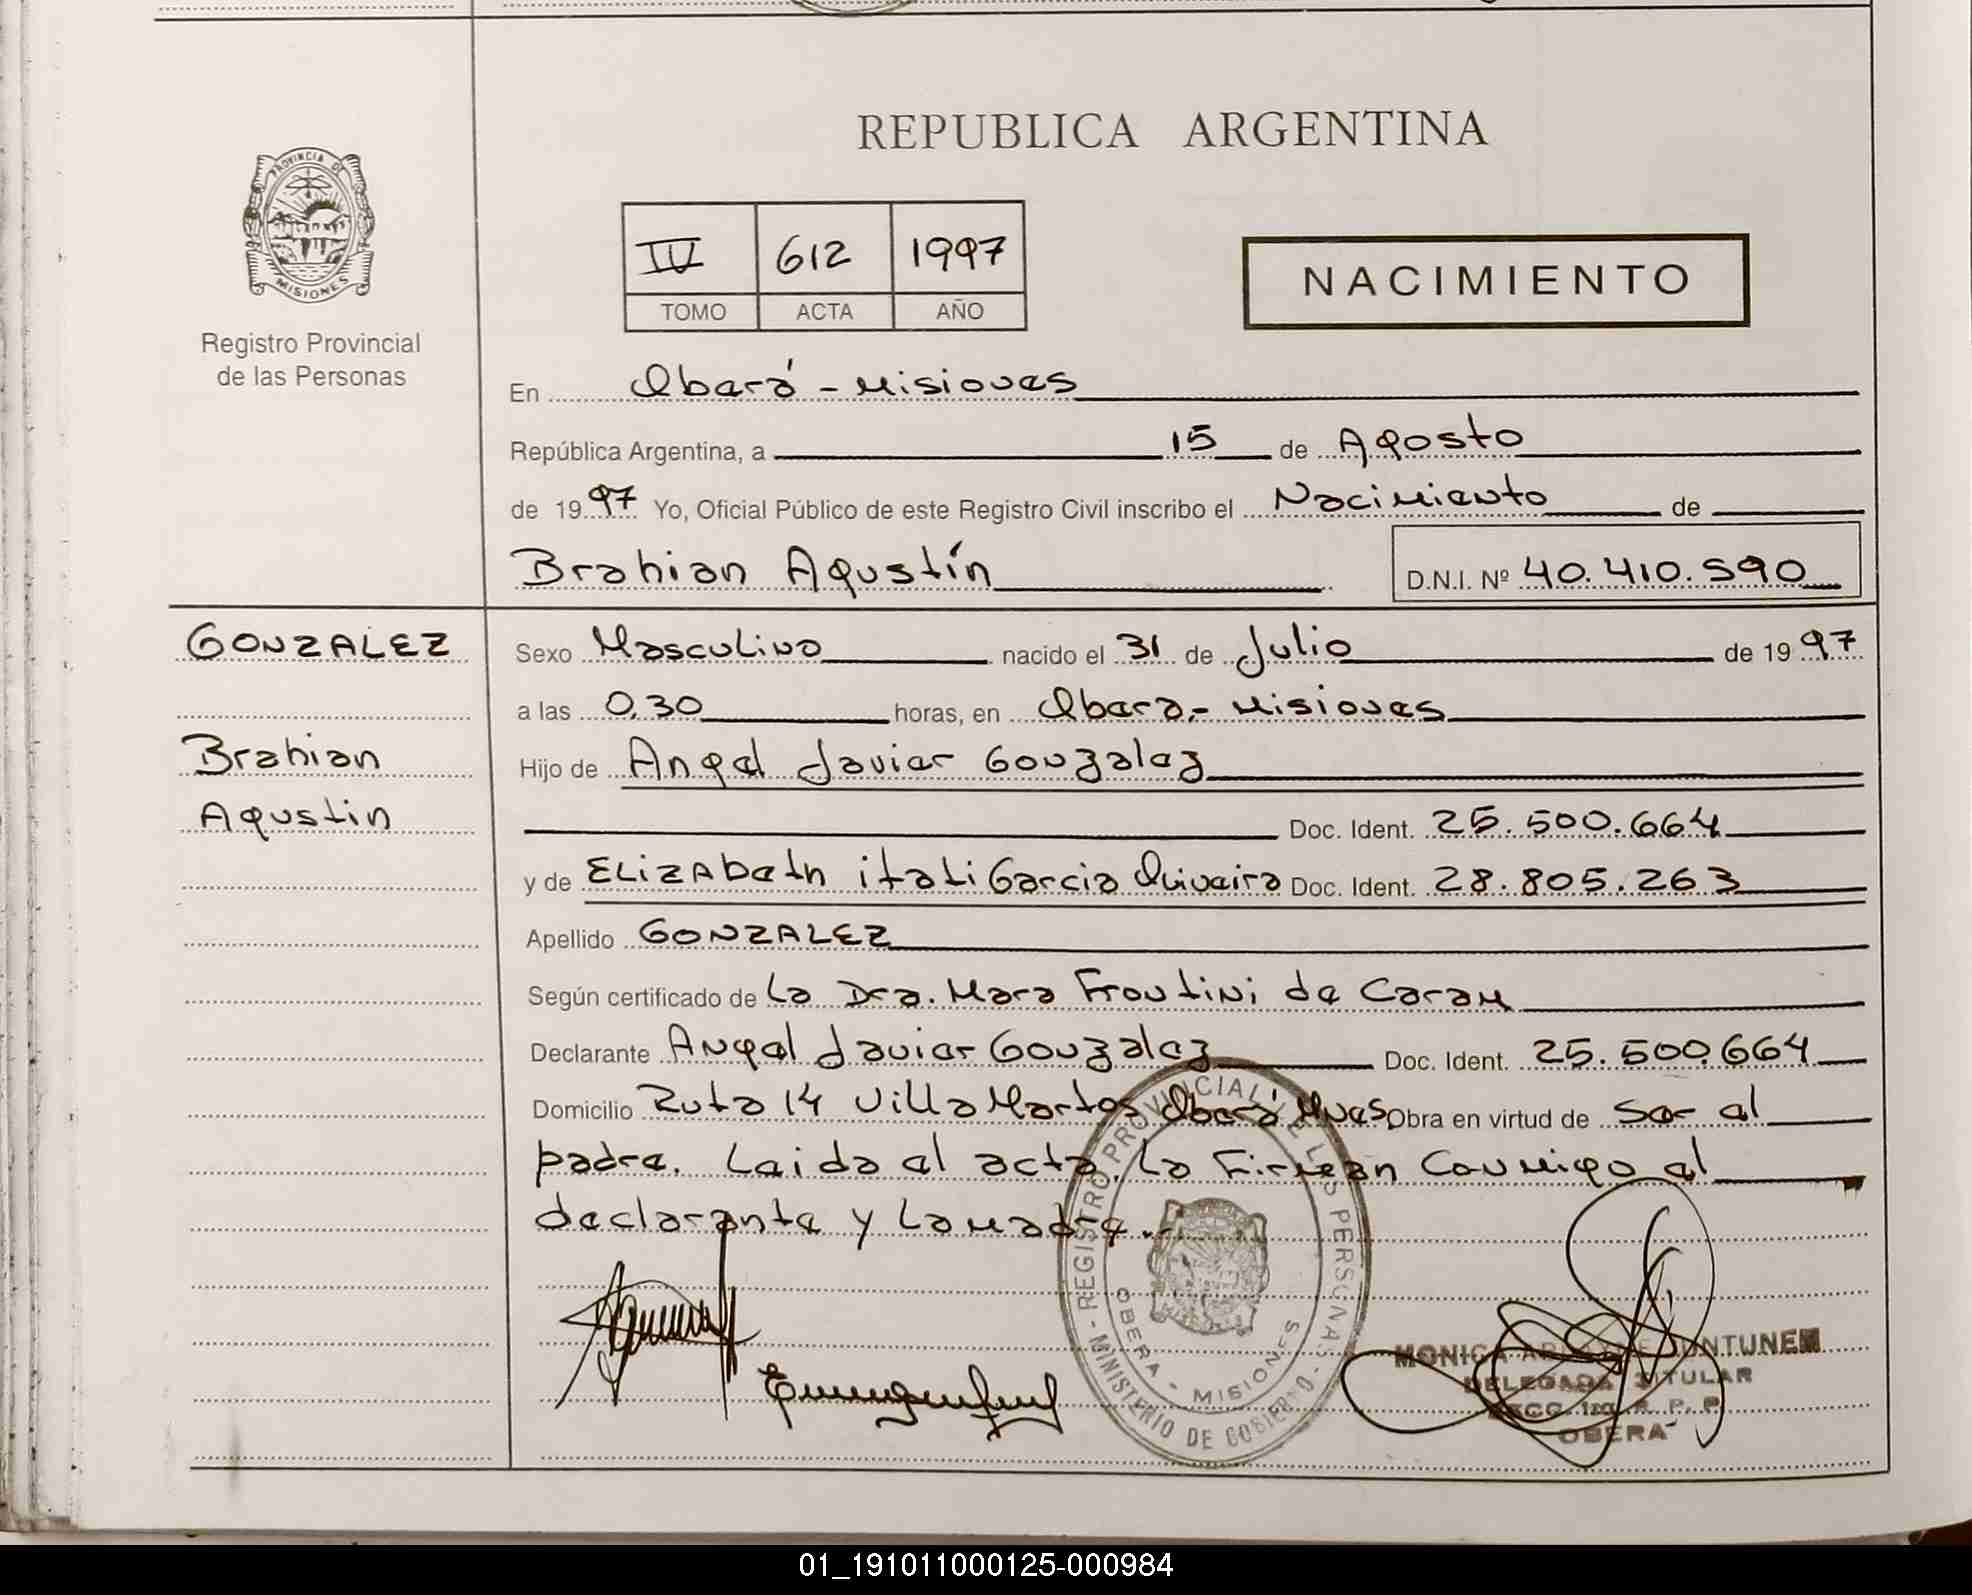 REPUBLICA ARGENTINA
PROVINCIA DE
MISIONES
Registro Provincial
de las Personas
IV 612 1997
TOMO ACTA AÑO
NACIMIENTO
En Oberá - Misiones
República Argentina, a 15 de Agosto
de 1997 Yo, Oficial Público de este Registro Civil inscribo el Nacimiento de
Brahian Agustín D.N.I. Nº 40.410.590
GONZALEZ
Brahian
Agustin
Sexo Masculino nacido el 31 de Julio de 1997
a las 0,30 horas, en Obera.- Misiones
Hijo de Angel Javier Gonzalez
Doc. Ident. 25.500.664
y de ELIZAbeth itati Garcia Oliveira Doc. Ident. 28.805.263
Apellido GONZALEZ
Según certificado de La Dra. Mara Frontini de Caram
Declarante Angel Javier Gonzalez Doc. Ident. 25.500.664
Domicilio Ruta 14 Villa Martos Oberá Mnes Obra en virtud de Ser el
padre. Leida el acta, La Firman Conmigo el
declarante y La madre.-
REGISTRO PROVINCIAL DE LAS PERSONAS - MINISTERIO DE GOBIERNO -
OBERA - MISIONES
MONICA
DELEGADA TITULAR
R. P. P.
OBERA
01_191011000125-000984